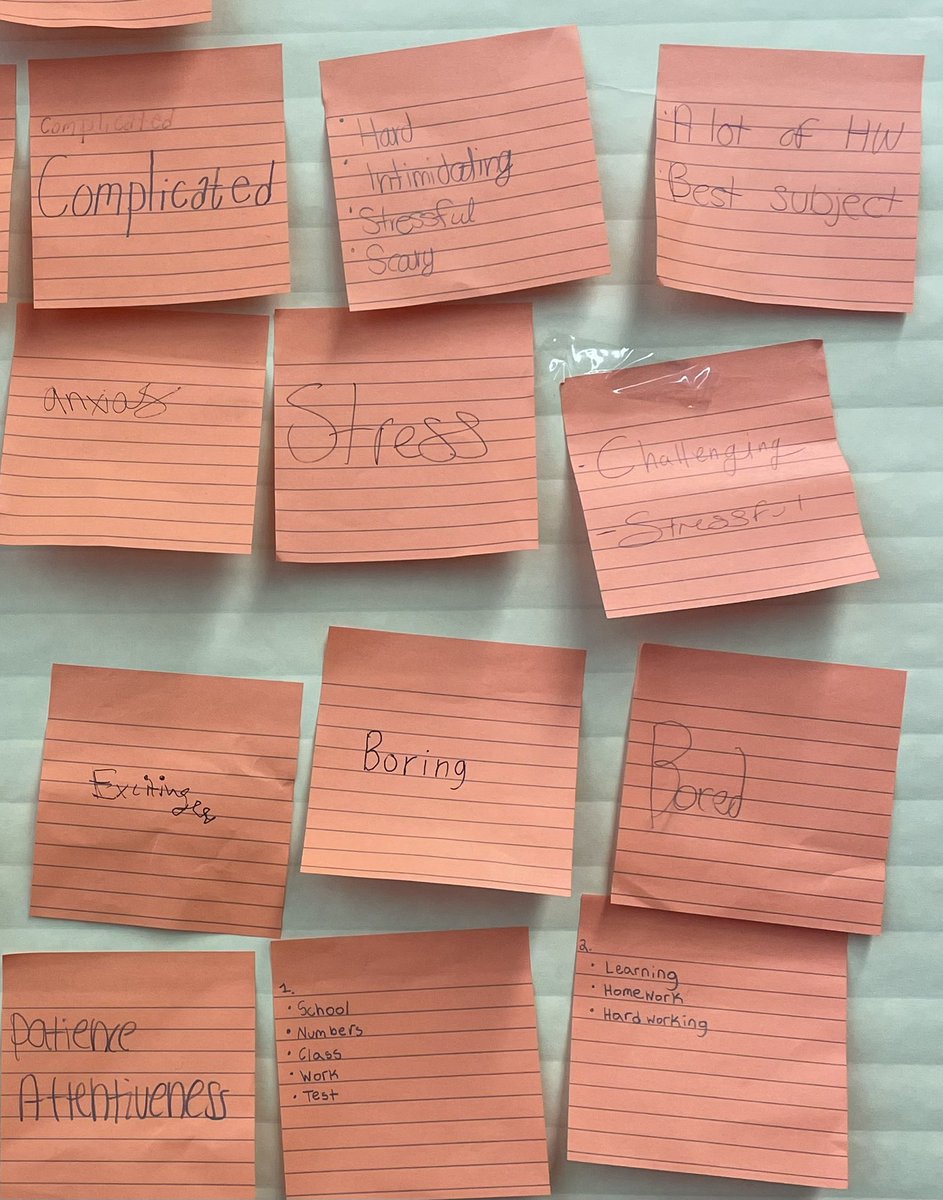 Complicated
Complicated
• Hard
• Intimidating
• Stressful
• Scary
• A lot of HW
Best subject
anxias
Stress
- Challenging
- Stressful
Exciting
Boring
Bored
Patience
Attentiveness
1.
• School
• Numbers
• Class
• Work
• Test
2.
• Learning
• Homework
• Hard working